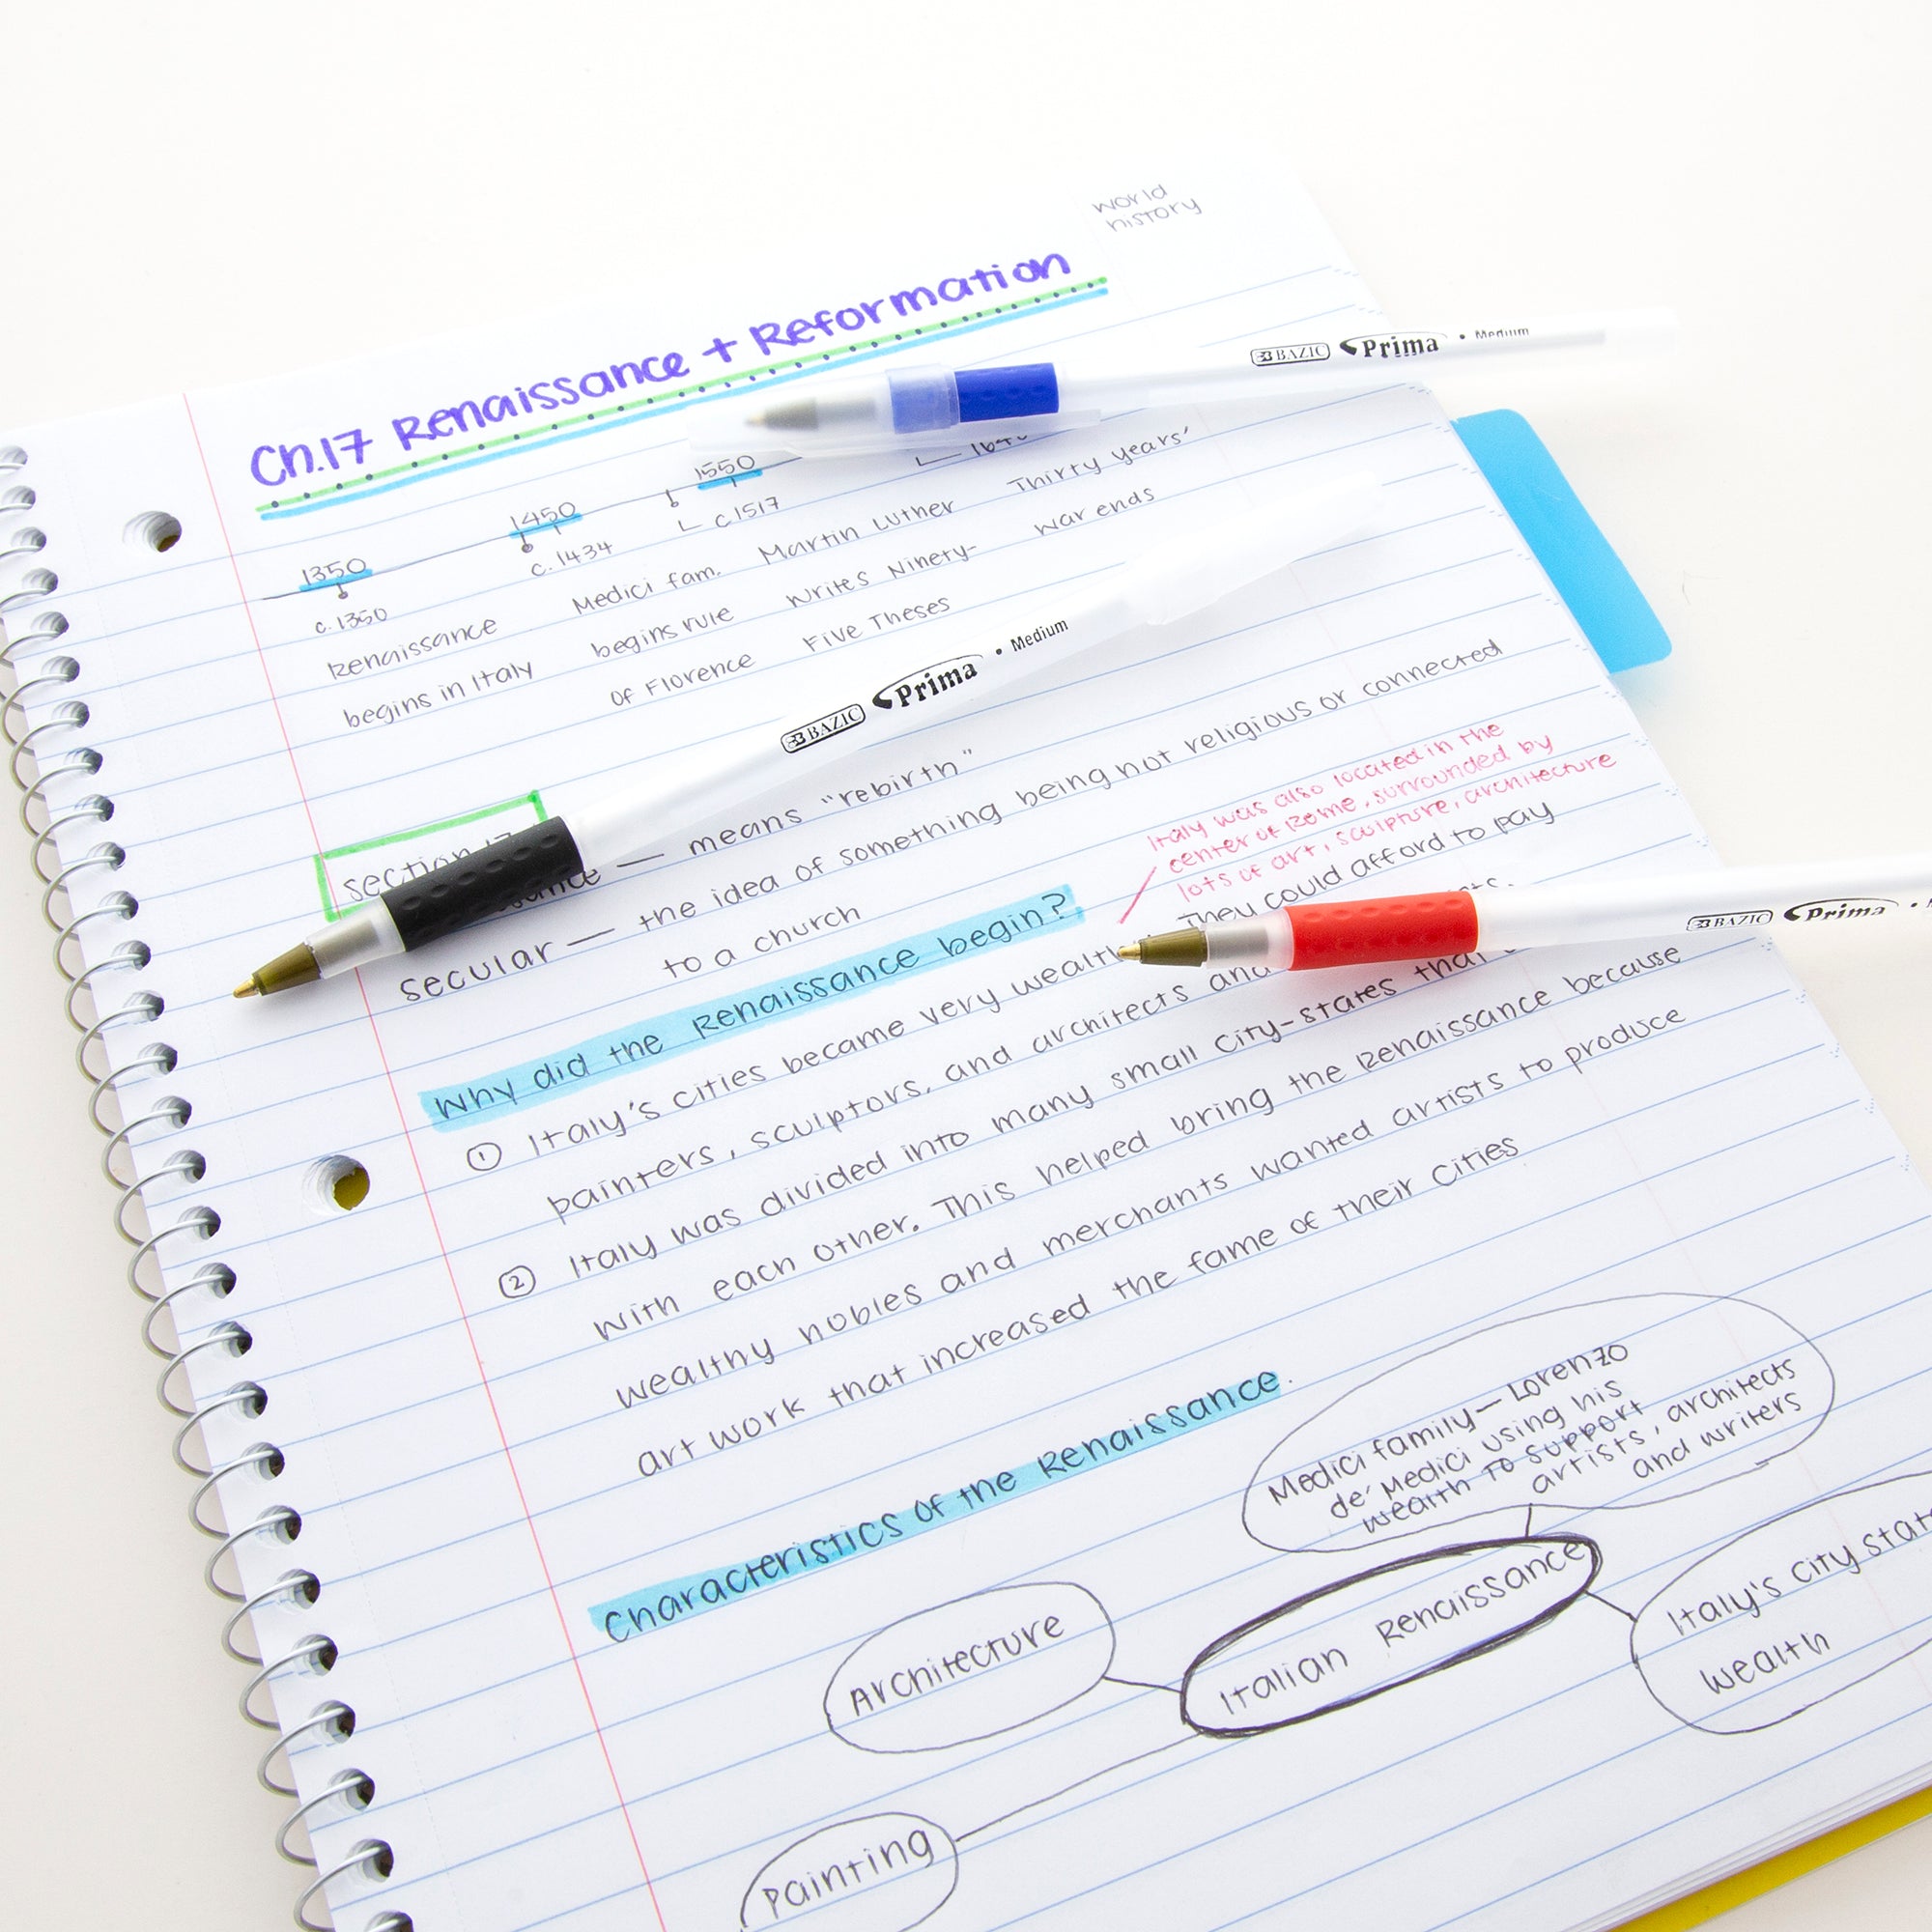 world
history
Ch.17 Renaissance + Reformation
BAZIC Prima • Medium
1350
1450
1550
c. 1350
c. 1434
c 1517
Renaissance
begins in Italy
Medici fam.
begins rule
of Florence
Martin Luther
writes Ninety-
Five Theses
Thirty Years'
war ends
BAZIC Prima • Medium
section
— means "rebirth"
secular — the idea of something being not religious or connected
to a church
Italy was also located in the
center of Rome, surrounded by
lots of art, sculpture, architecture
Why did the Renaissance begin?
BAZIC Prima •
① Italy's cities became very They could afford to pay
painters, sculptors, and architects
② Italy was divided into many small city-states that
with each other. This helped bring the Renaissance because
wealthy nobles and merchants wanted artists to produce
art work that increased the fame of their cities
Characteristics of the Renaissance.
Medici family — Lorenzo
de' Medici using his
wealth to support
artists, architects
and writers
Italian Renaissance
Architecture
Italy's city
wealth
Painting